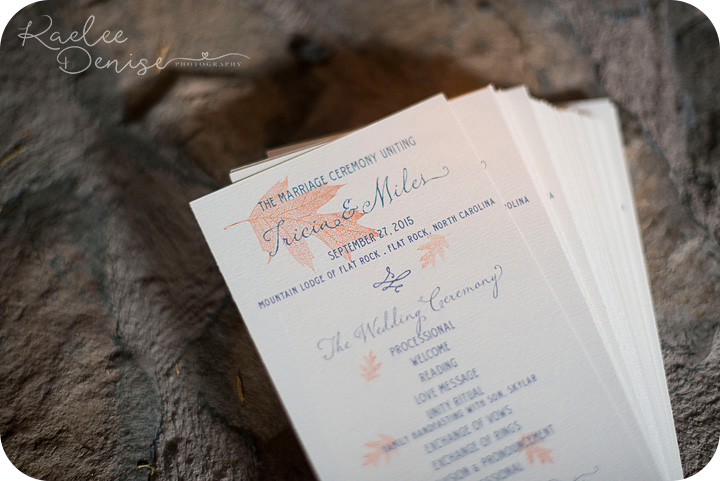 Kaelee
Denise PHOTOGRAPHY
THE MARRIAGE CEREMONY UNITING
Tricia & Miles
SEPTEMBER 27, 2015
MOUNTAIN LODGE OF FLAT ROCK . FLAT ROCK, NORTH CAROLINA
The Wedding Ceremony
PROCESSIONAL
WELCOME
READING
LOVE MESSAGE
UNITY RITUAL
FAMILY HANDFASTING WITH SON, SKYLAR
EXCHANGE OF VOWS
EXCHANGE OF RINGS
& PRONOUNCEMENT
OLINA